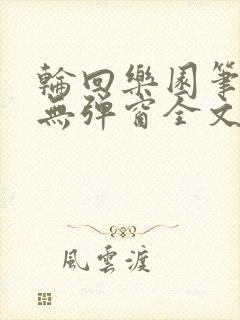 輪回樂園筆
無彈窗全文
風雲渡